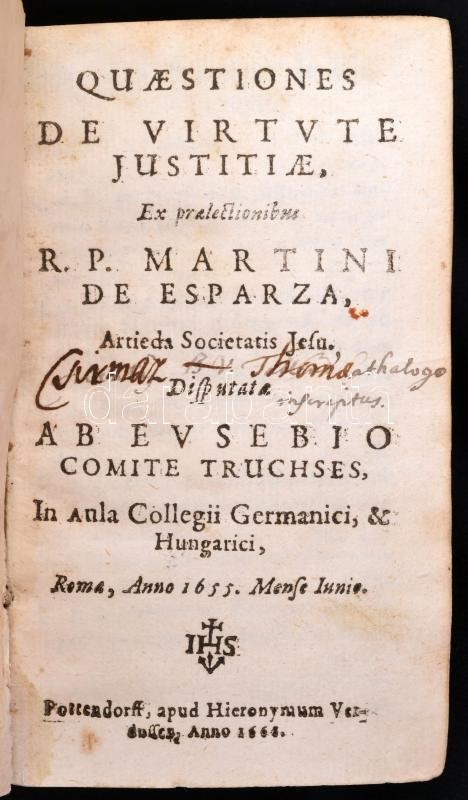 QUÆSTIONES
DE VIRTVTE
JUSTITIÆ,
Ex prælectionibus
R. P. MARTINI
DE ESPARZA,
Artieda Societatis Jesu.
Thomæ Cathalogo
inscriptus.
Disputatæ
AB EVSEBIO
COMITE TRUCHSES,
In Aula Collegii Germanici, &
Hungarici,
Romæ, Anno 1655. Mense Iunio.
IHS
Pottendorff, apud Hieronymum Ver-
dussen, Anno
darabanth